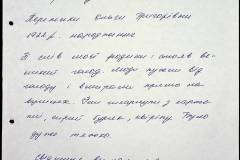 Перепички Ольги Григорівни
1922 р. народження
Зі слів моєї родини: стояв ве-
ликий голод. Люди пухли від
голоду і вмирали прямо на
вулицях. Їли шкарлупу з картоп-
лі, сирий буряк, квіти. Було
дуже тяжко.